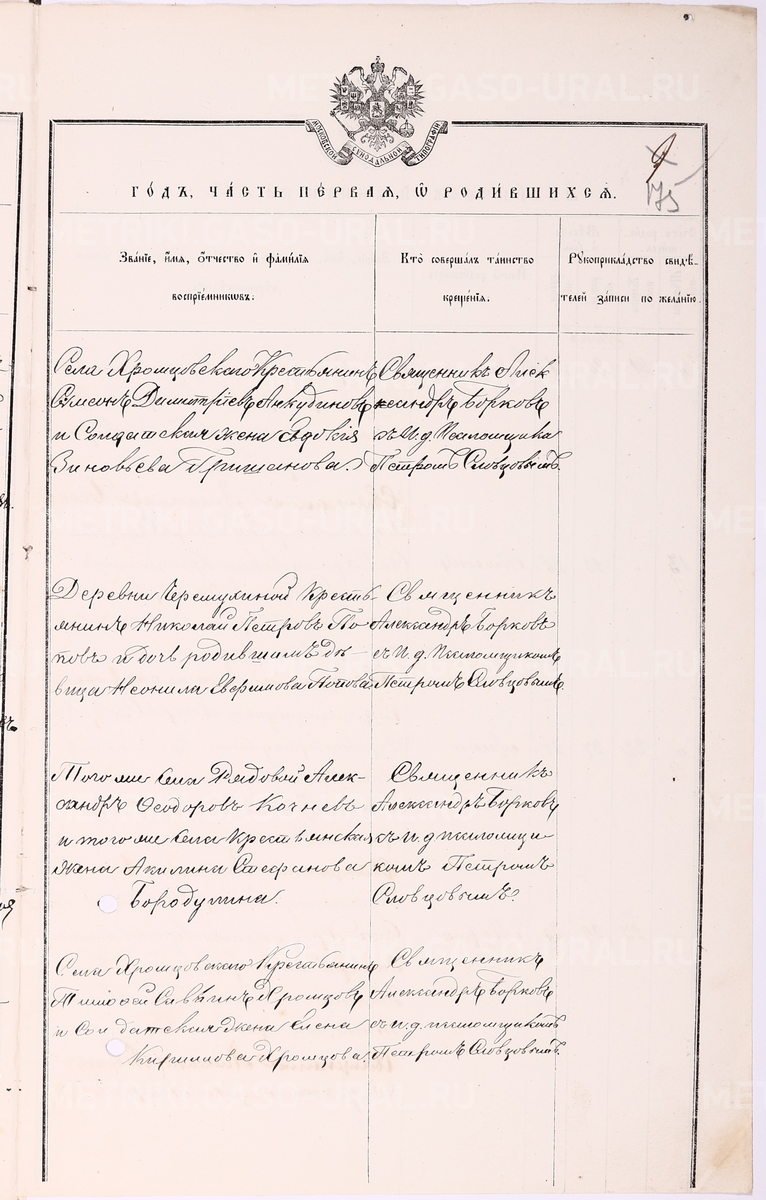 МОСКОВСКОЙ СИНОДАЛЬНОЙ ТИПОГРАФІИ
9
175
ГО́ДЪ, ЧА́СТЬ ПЕ́РВАЯ, Ѽ РОДИ́ВШИХСѦ.
Зва́нїе, и҆́мя, ѻ҆́тчество и҆ фами́лїя
воспрїе́мникѡвъ.
Кто̀ соверша́лъ та́инство
креще́нїѧ.
Рꙋкоприкла́дство свидѣ́-
телей за́писи по жела́нїю.
Села Хромцовскаго Крестьянинъ
Симеонъ Димитріевъ Анкудиновъ
и Солдатская жена Евдокія
Зиновьева Гришанова.
Священникъ Алек
ксандръ Борковъ
съ И. д. Псаломщика
Петромъ Словцовымъ.
Деревни Черемухиной Кресть-
янинъ Николай Петровъ По-
повъ и дочь родившимъ дѣ-
вица Неонила Евфимова Попова
Священникъ
Александръ Борковъ
съ И. д. Псаломщикомъ
Петромъ Словцовымъ.
Того же Села Рядовой Алек-
сандръ Ѳеодоровъ Кочневъ
и того же Села Крестьянская
жена Акилина Стефанова
Бородулина.
Священникъ
Александръ Борковъ
съ И. д псаломщи-
комъ Петромъ
Словцовымъ.
Села Хромцовскаго Крестьянинъ
Тимофей Саввинъ Хромцовъ
и Солдатская Жена Елена
Кириллова Хромцова.
Священникъ
Александръ Борковъ
съ И. д. псаломщикомъ
Петромъ Словцовымъ.
METRIKI.GASO-URAL.RU